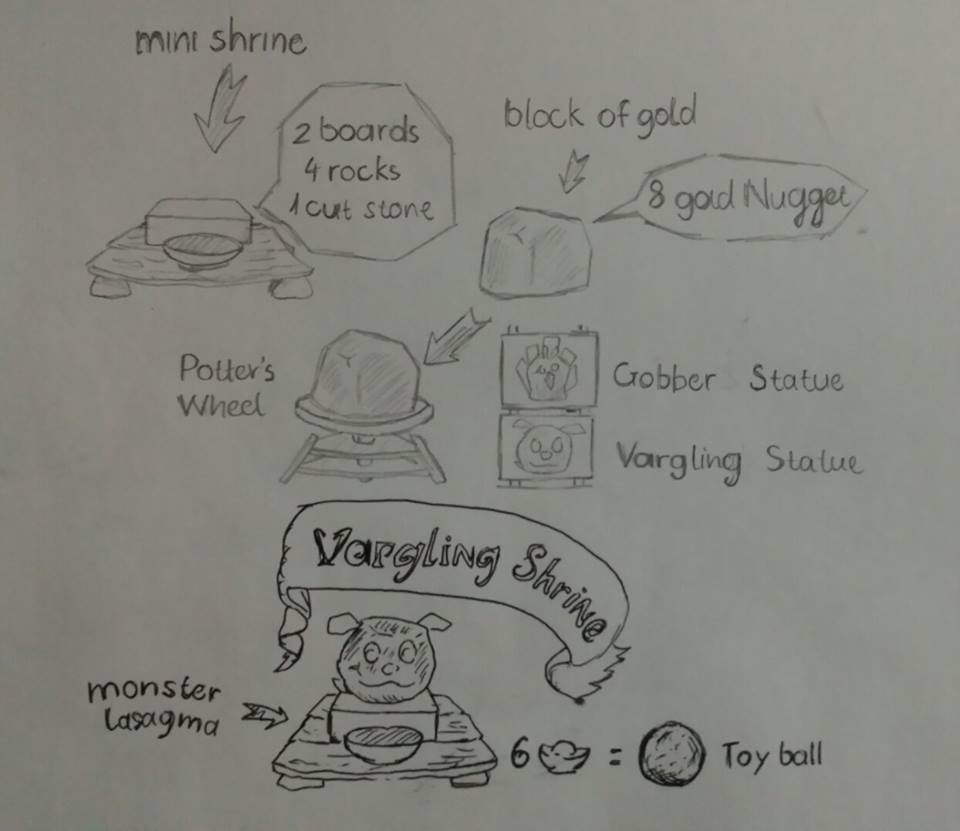 mini shrine
2 boards
4 rocks
1 cut stone
block of gold
8 gold Nugget
Potter's
Wheel
Gobber Statue
Vargling Statue
Vargling Shrine
monster
lasagma
6 = Toy ball